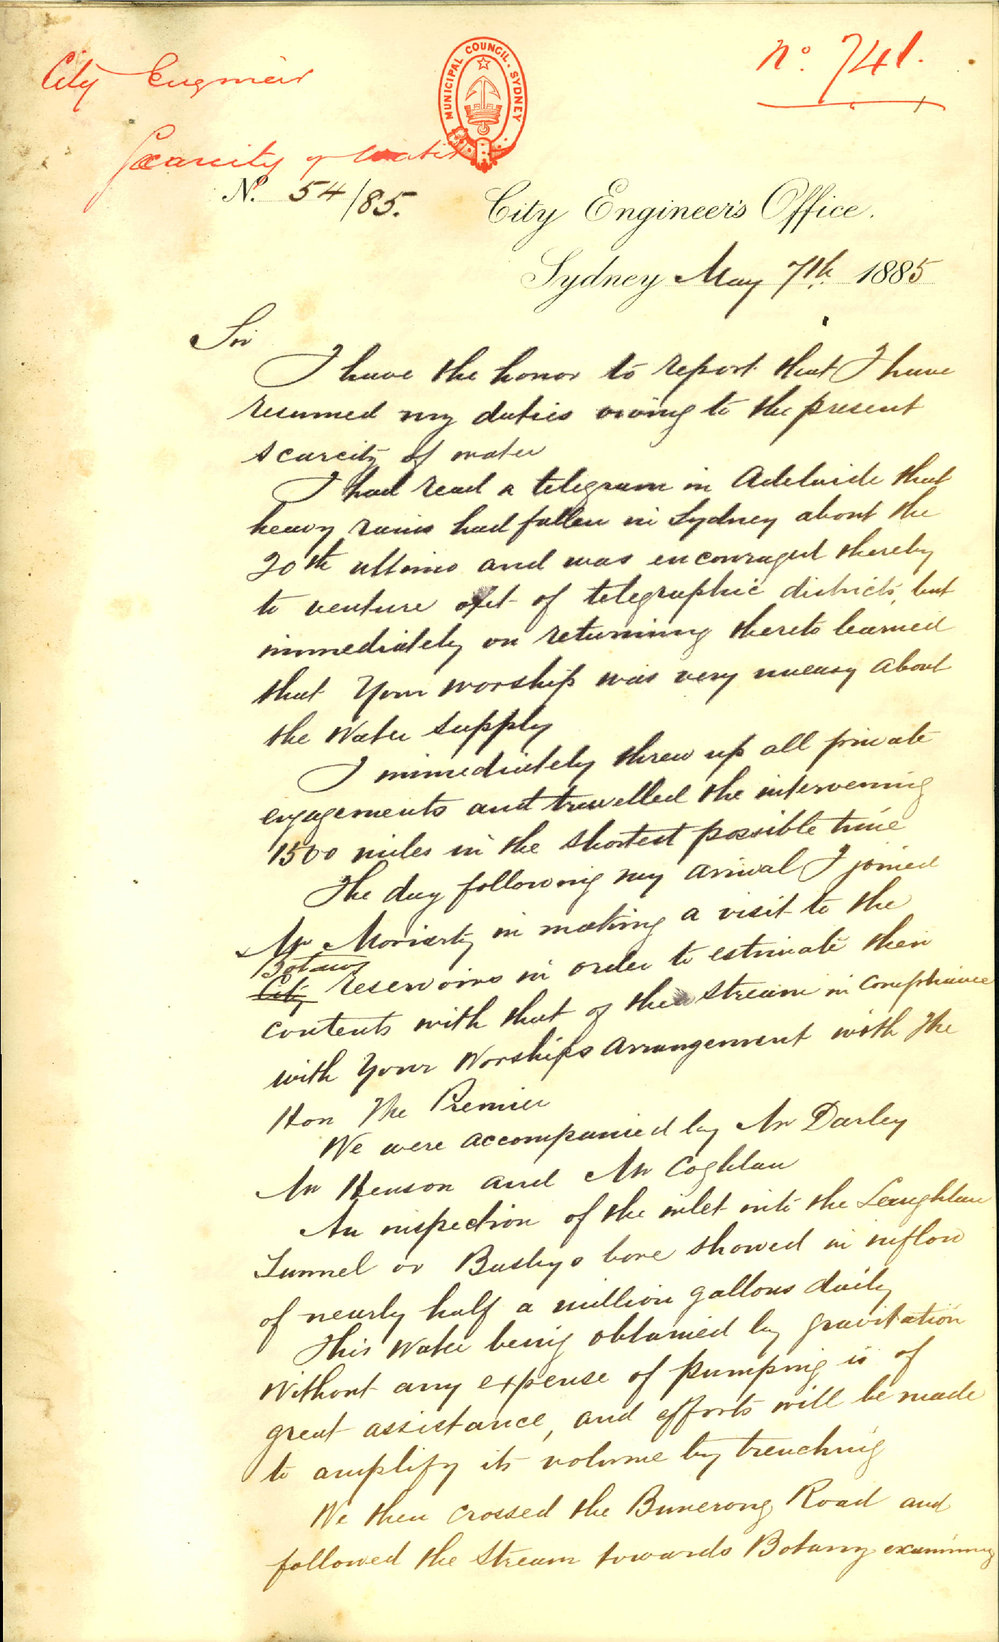 City Engineer
No. 741.
MUNICIPAL COUNCIL. SYDNEY
Scarcity of Water
No. 54/85.
City Engineer's Office.
Sydney May 7th. 1885
Sir
I have the honor to report that I have
resumed my duties owing to the present
scarcity of water
I had read a telegram in Adelaide that
heavy rains had fallen in Sydney about the
20th ultimo and was encouraged thereby
to venture out of telegraphic districts, but
immediately on returning thereto learned
that Your Worship was very uneasy about
the Water Supply
I immediately threw up all private
engagements and travelled the intervening
1500 miles in the shortest possible time
The day following my arrival I joined
Mr Moriarty in making a visit to the
Botany
City reservoirs in order to estimate their
contents with that of the stream in compliance
with Your Worships arrangement with the
Hon The Premier
We were accompanied by Mr Darley
Mr Henson and Mr Coghlan
An inspection of the inlet into the Laughlan
Tunnel or Busbys bore showed in inflow
of nearly half a million gallons daily
This Water being obtained by gravitation
without any expense of pumping is of
great assistance, and efforts will be made
to amplify its volume by trenching
We then crossed the Bunerong Road and
followed the Stream towards Botany examining